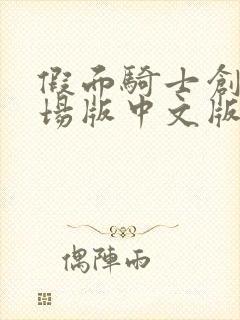 假面騎士創
場版中文版
偶陣雨